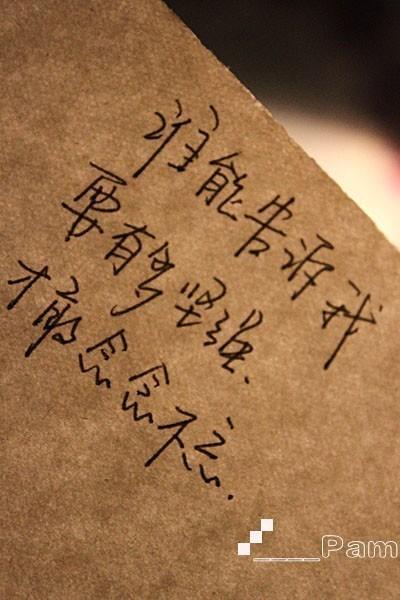 谁能告诉我
要有多坚强.
才敢念念不忘.
____Pam